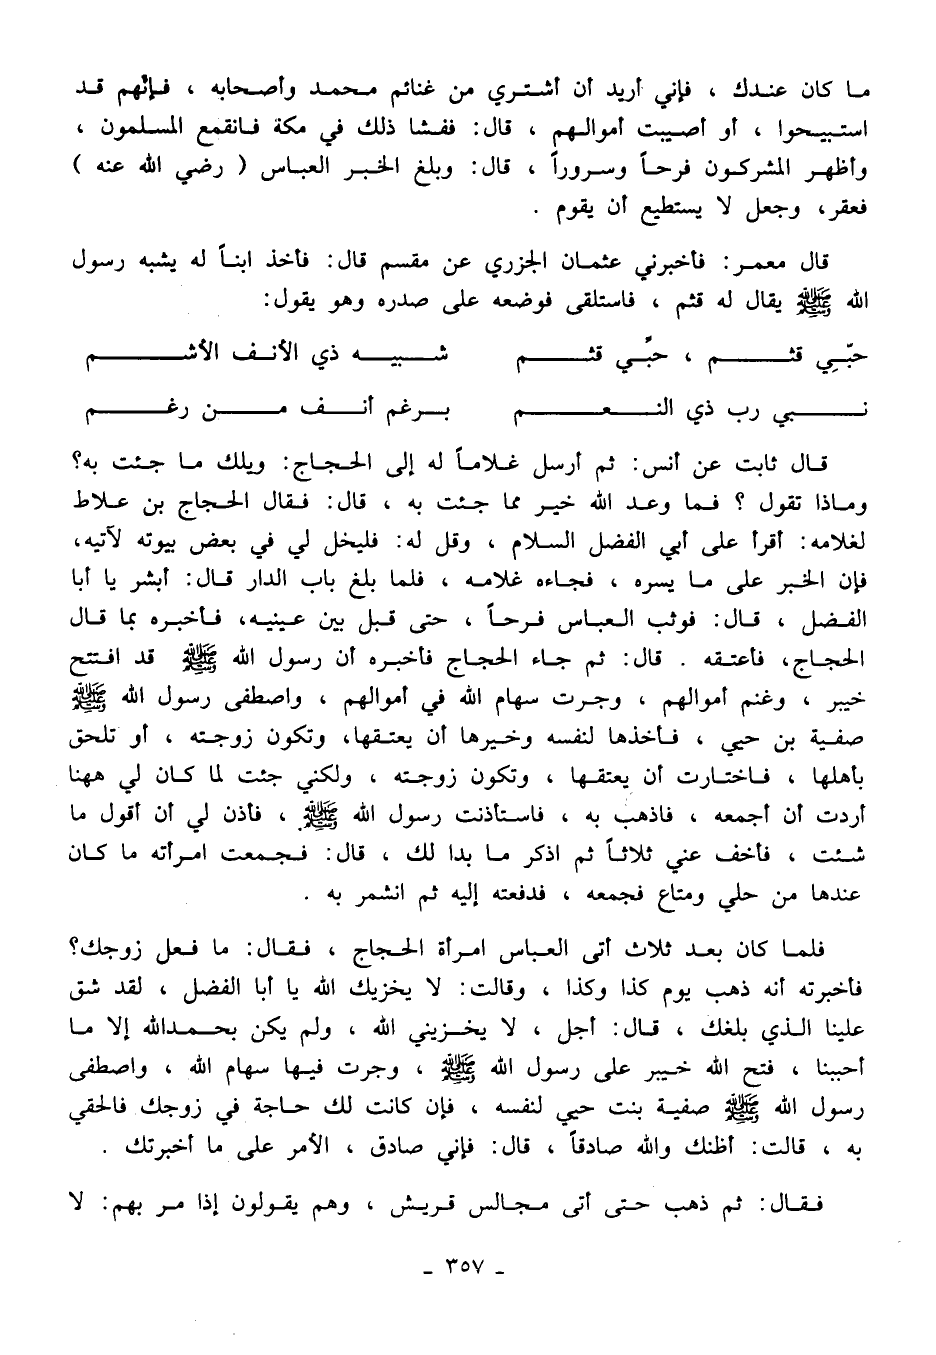 ما كان عندك ، فإني أريد أن أشتري من غنائم محمد وأصحابه ، فإنَّهم قد
استبيحوا ، أو أصيبت أموالهم ، قال: ففشا ذلك في مكة فانقمع المسلمون ،
وأظهر المشركون فرحاً وسروراً ، قال: وبلغ الخبر العباس ( رضي الله عنه )
فعقر، وجعل لا يستطيع أن يقوم .
قال معمر: فأخبرني عثمان الجزري عن مقسم قال: فأخذ ابناً له يشبه رسول
الله ﷺ يقال له قثم ، فاستلقى فوضعه على صدره وهو يقول:
حبّي قثم ، حبّي قثم شبيه ذي الأنف الأشم
نبي رب ذي النعم برغم أنف من رغم
قال ثابت عن أنس: ثم أرسل غلاماً له إلى الحجاج: ويلك ما جئت به؟
وماذا تقول ؟ فما وعد الله خير مما جئت به ، قال: فقال الحجاج بن علاط
لغلامه: أقرأ على أبي الفضل السلام ، وقل له: فليخل لي في بعض بيوته لآتيه،
فإن الخبر على ما يسره ، فجاءه غلامه ، فلما بلغ باب الدار قال: أبشر يا أبا
الفضل ، قال: فوثب العباس فرحاً ، حتى قبل بين عينيه، فأخبره بما قال
الحجاج، فأعتقه . قال: ثم جاء الحجاج فأخبره أن رسول الله ﷺ قد افتتح
خيبر ، وغنم أموالهم ، وجرت سهام الله في أموالهم ، واصطفى رسول الله ﷺ
صفية بن حيي ، فأخذها لنفسه وخيرها أن يعتقها، وتكون زوجته ، أو تلحق
بأهلها ، فاختارت أن يعتقها ، وتكون زوجته ، ولكني جئت لما كان لي ههنا
أردت أن أجمعه ، فاذهب به ، فاستأذنت رسول الله ﷺ ، فأذن لي أن أقول ما
شئت ، فأخف عني ثلاثاً ثم اذكر ما بدا لك ، قال: فجمعت امرأته ما كان
عندها من حلي ومتاع فجمعه ، فدفعته إليه ثم انشمر به .
فلما كان بعد ثلاث أتى العباس امرأة الحجاج ، فقال: ما فعل زوجك؟
فأخبرته أنه ذهب يوم كذا وكذا ، وقالت: لا يخزيك الله يا أبا الفضل ، لقد شق
علينا الذي بلغك ، قال: أجل ، لا يخزيني الله ، ولم يكن بحمدالله إلا ما
أحببنا ، فتح الله خيبر على رسول الله ﷺ ، وجرت فيها سهام الله ، واصطفى
رسول الله ﷺ صفية بنت حيي لنفسه ، فإن كانت لك حاجة في زوجك فالحقي
به ، قالت: أظنك والله صادقاً ، قال: فإني صادق ، الأمر على ما أخبرتك .
فقال: ثم ذهب حتى أتى مجالس قريش ، وهم يقولون إذا مر بهم: لا
- ٣٥٧ -